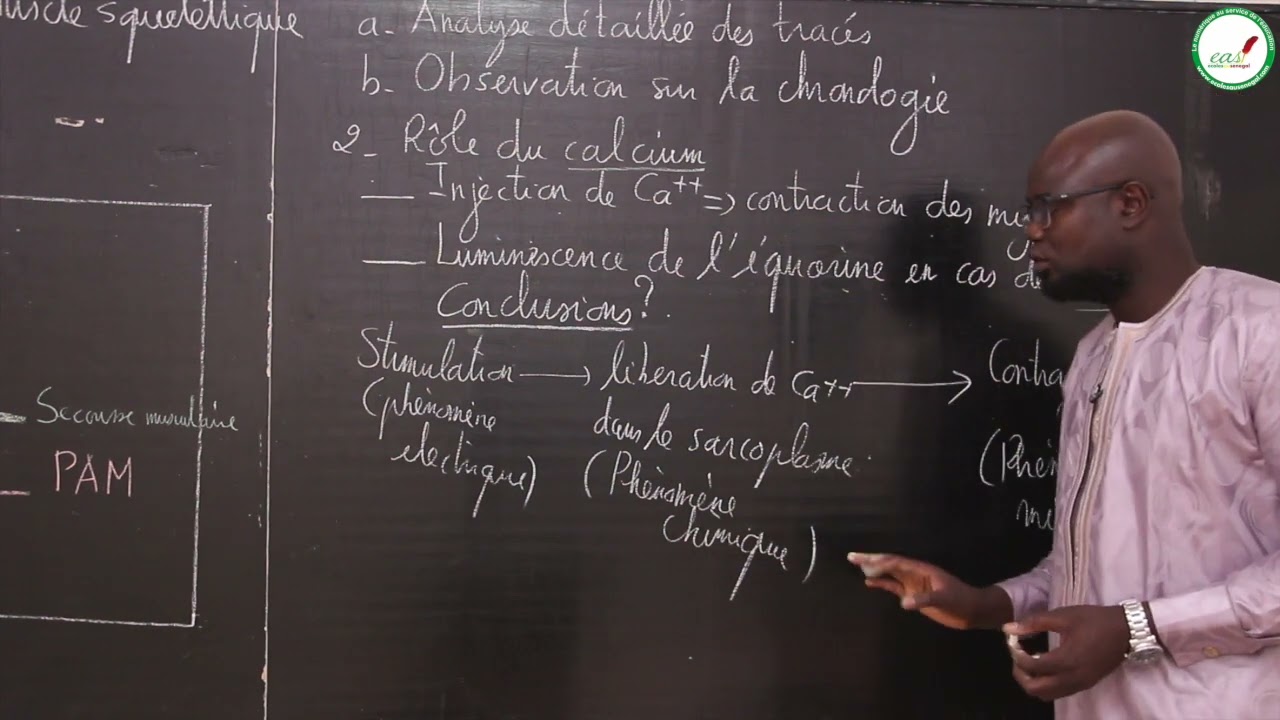 squelettique
a. Analyse détaillée des tracés
b. Observation sur la chronologie
2. Rôle du calcium
— Injection de Ca++ => contraction des my
— Luminèscence de l'équorine en cas d
Conclusions?
Stimulation → libération de Ca++ → Contra
(phénomène dans le sarcoplasme (Phén
électrique) (Phènomène mé
chimique)
Secousse musculaire
PAM
Le numérique au service de l'éducation
eas
ecolesausenegal
www.ecolesausenegal.com